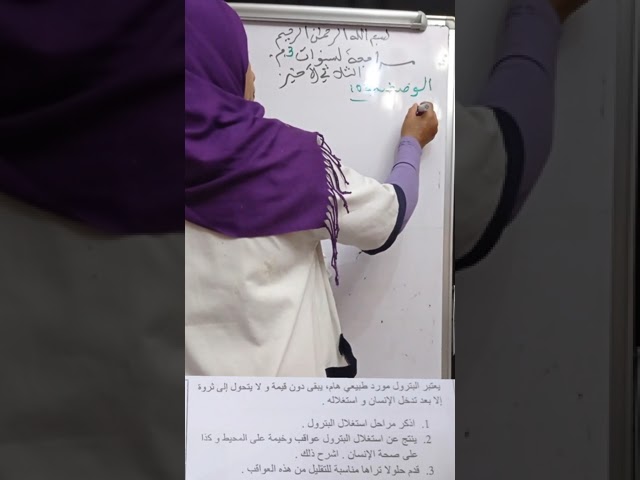 بسم الله الرحمن الرحيم
مراجعة لسنوات 3.م.
الثلاثي الأخير
الوضعية 01
يعتبر البترول مورد طبيعي هام، يبقى دون قيمة و لا يتحول إلى ثروة
إلا بعد تدخل الإنسان و استغلاله .
1. اذكر مراحل استغلال البترول .
2. ينتج عن استغلال البترول عواقب وخيمة على المحيط و كذا
على صحة الإنسان . اشرح ذلك .
3. قدم حلولا تراها مناسبة للتقليل من هذه العواقب .